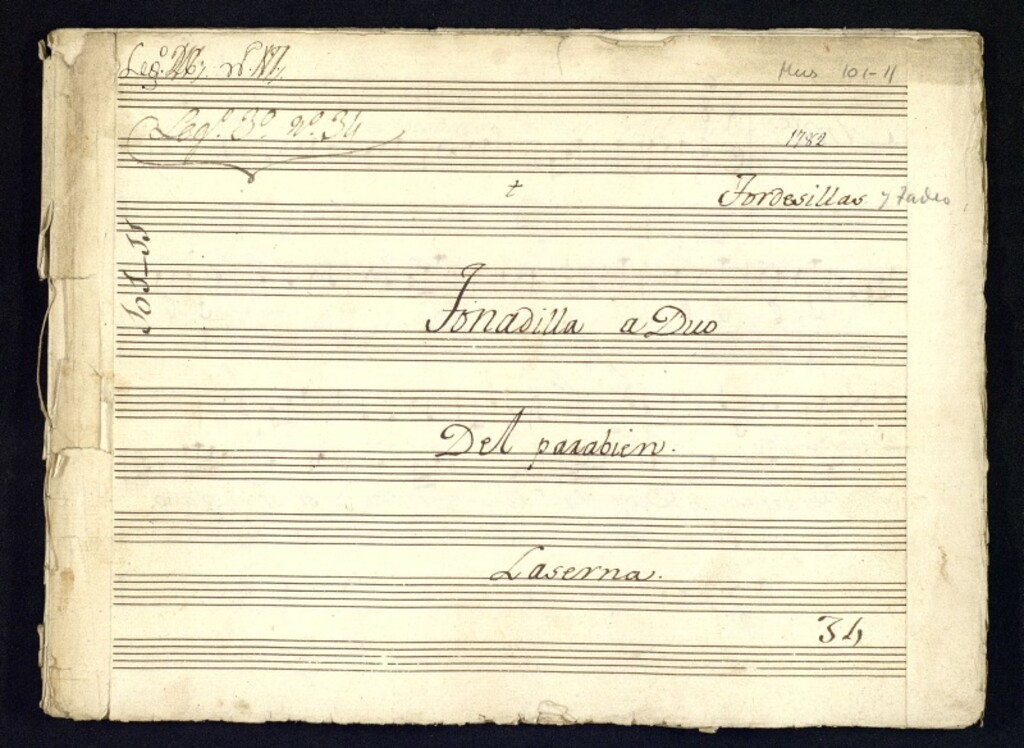 Mus 101-11
Leg.º 3º nº 34
1782
+
Tordesillas y Tadeo
Tonadilla a Duo
Del parabien.
Laserna.
34